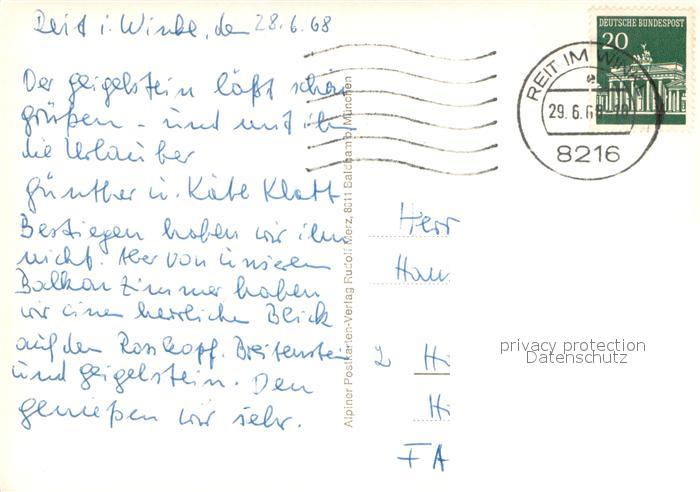 Reit i. Winkl, den 28.6.68
Der Geigelstein läßt schön
grüßen - und mit ihm
die Urlauber
Günther u. Käte Klatt
Bestiegen haben wir ihn
nicht. Aber von unserem
Balkonzimmer haben
wir einen herrlichen Blick
auf den Rosskopf, Breitenstein
und Geigelstein. Den
genießen wir sehr.
Alpiner Postkarten-Verlag Rudolf Merz, 8011 Baldham b. München
DEUTSCHE BUNDESPOST
20
REIT IM WINKL
29.6.68
8216
Herr
2
FA
privacy protection
Datenschutz